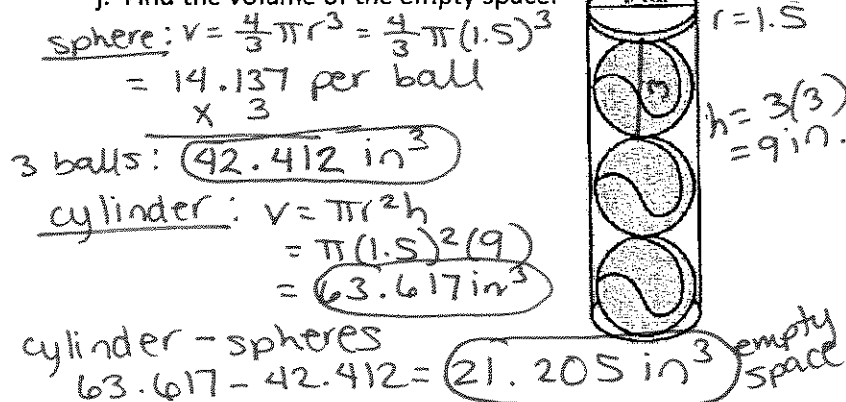 j. Find the volume of the empty space.
sphere: V = 4/3 πr³ = 4/3 π(1.5)³
= 14.137 per ball
x 3
3 balls: 42.412 in³
cylinder: V = πr²h
= π(1.5)²(9)
= 63.617 in³
cylinder - spheres
63.617 - 42.412 = 21.205 in³ empty space
r = 1.5
3
h = 3(3)
= 9 in.